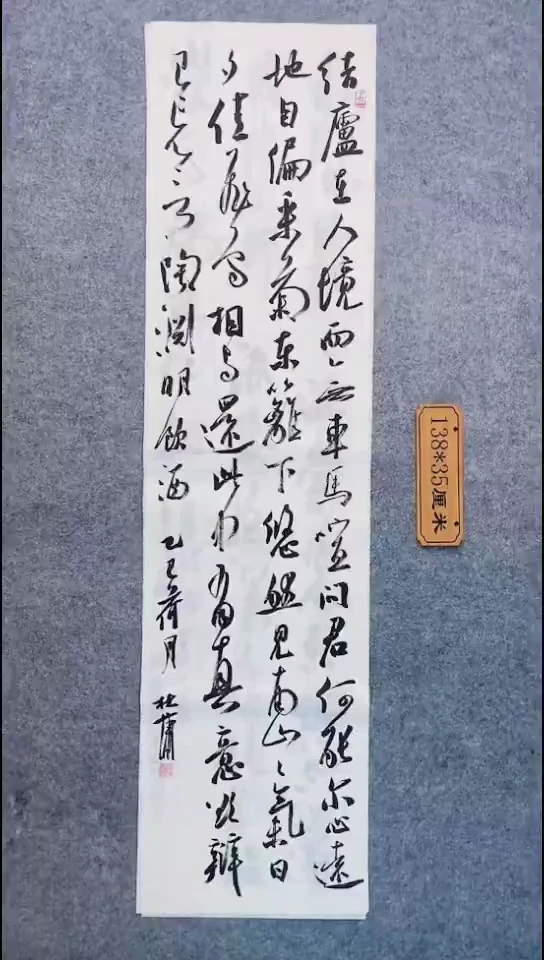 结廬在人境而无車馬喧问君何能尔心遠
地自偏采菊东籬下悠然见南山〻氣日
夕佳飛鸟相与還此中有真意欲辯
已忘言 陶淵明飲酒 乙巳荷月 杜
138*35厘米